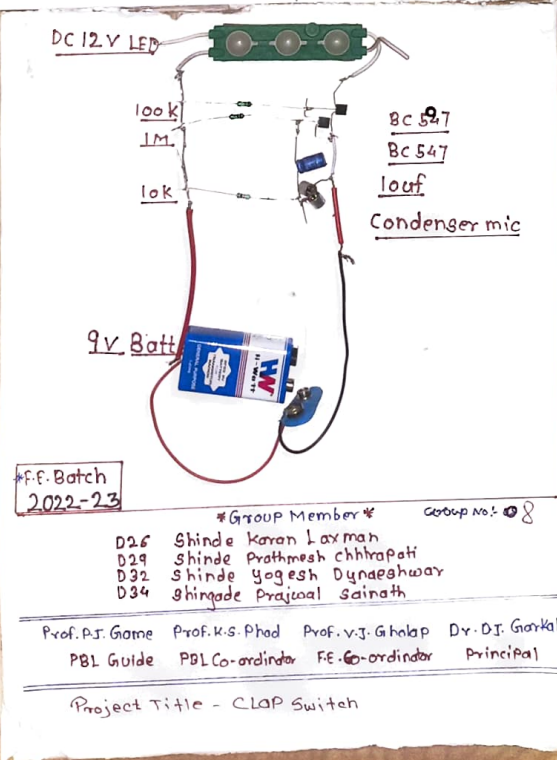 DC 12V LED
100K
1M
10K
BC 547
BC 547
10uf
Condenser mic
9V Batt
HW
Hi-Watt
*F.E. Batch
2022-23
*Group Member* Group No:- 08
D26 Shinde Karan Laxman
D29 Shinde Prathmesh Chhhrapati
D32 Shinde Yogesh Dynaeshwar
D34 Shingade Prajwal Sainath
Prof. P.J. Game Prof. K.S. Phad Prof. V.J. Gholap Dr. D.J. Garka
PBL Guide PBL Co-ordinator F.E. Co-ordinator Principal
Project Title - CLAP Switch